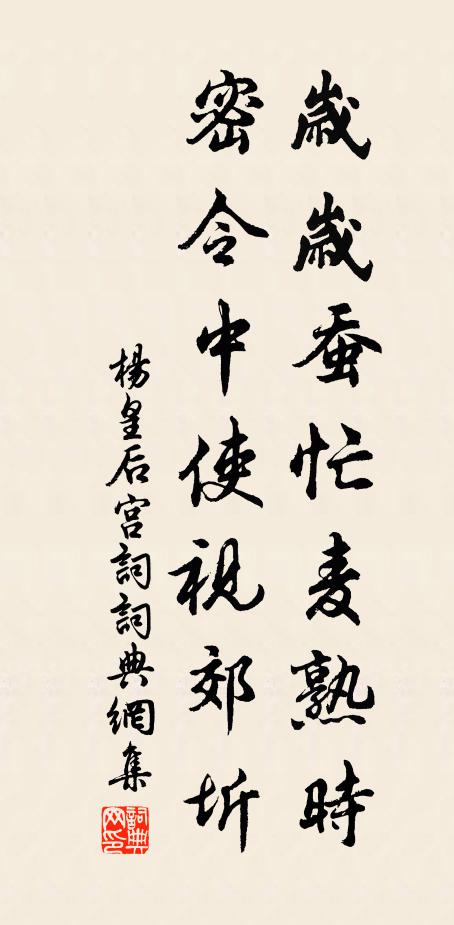 歲歲蚕忙麦熟時
密令中使視郊圻
楊皇后宫詞詞典網集
詞典网印